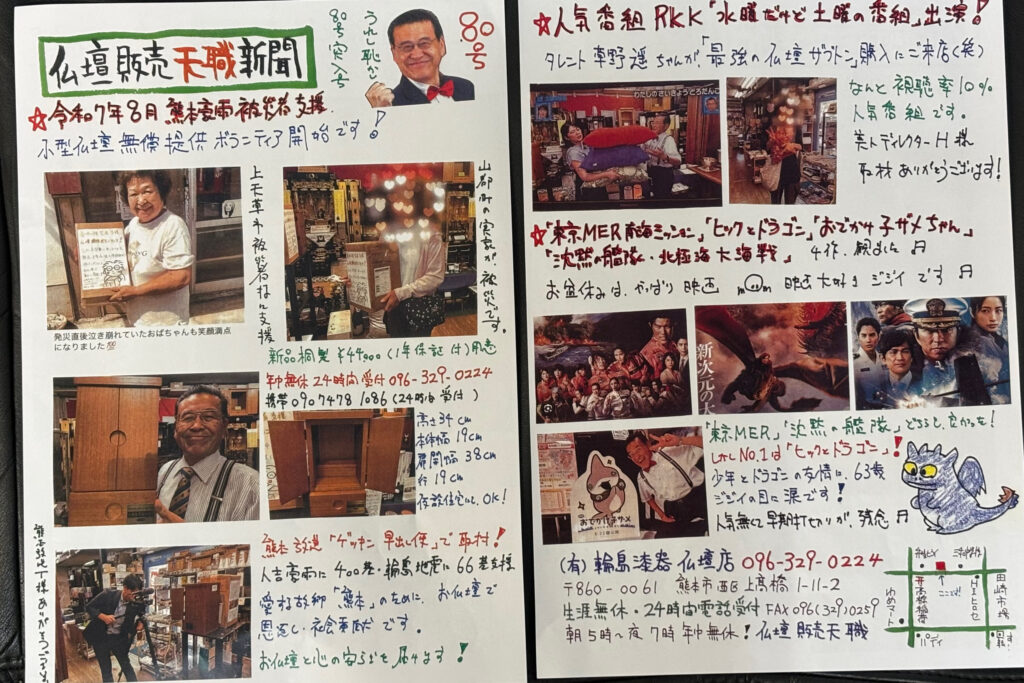 80号
うれし恥かし
80号突入号
仏壇販売天職新聞
☆令和7年8月 熊本豪雨被災者支援。
小型仏壇無償提供ボランティア開始です!
上天草市被災者様に支援
山都町の実家が被災です。
発災直後泣き崩れていたおばちゃんも笑顔満点
になりました💯
新品桐製¥44,900(1年保証付)用意
年中無休24時間受付096-329-0224
携帯090 7478 1086(24時間受付)
高さ34cm
本体幅19cm
扉開幅38cm
奥行19cm
仮設住宅にも、OK!
熊本放送「ゲッキン早出し便」で取材!
人吉豪雨に400基・輪島地震に66基支援
愛する故郷「熊本」のために、お仏壇で
恩返し・社会奉仕です。
お仏壇と心の安らぎを届けます!
熊本放送T様ありがとうございます
☆人気番組RKK「水曜だけど土曜の番組」出演!
タレント草野遥ちゃんが、「最強の仏壇ザブトン」購入にご来店(笑)
わたしのさいきょうどろだんご
なんと視聴率10%
人気番組です。
美人ディレクターH様
取材ありがとうございます!
☆「東京MER南海ミッション」「ヒックとドラゴン」「おでかけ子ザメちゃん」
「沈黙の艦隊・北極海大海戦」 4作、観ました♬
お盆休みは、やっぱり映画 映画大好きジジイです♬
新次元の
おでかけ子ザメ
「東京MER」「沈黙の艦隊」どちらも、良かった!
しかしNo.1は「ヒックとドラゴン」!
少年とドラゴンの友情に63歳
ジジイの目に涙です!
人気無くて早期打ち切りが、残念♬
(有)輪島漆器仏壇店 096-329-0224
〒860-0061 熊本市西区上高橋1-11-2
生涯無休・24時間電話受付 FAX096(329)0259
朝5時〜夜7時年中無休!仏壇販売天職
ここです!
上高橋橋
田崎市場
ゆめマート